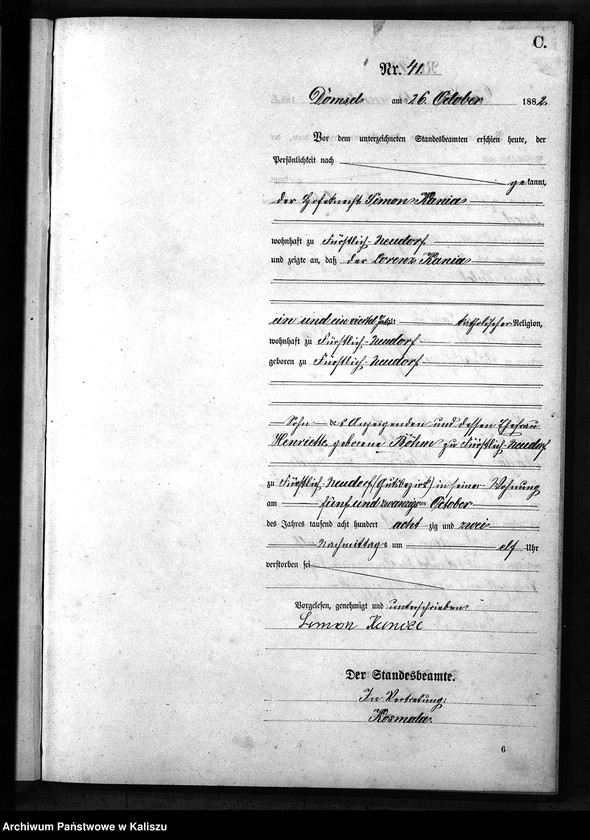 C.
Nr. 41.
Domsel am 26. October 1882
Vor dem unterzeichneten Standesbeamten erschien heute, der
Persönlichkeit nach
gekannt,
der Hofeknecht Simon Kania
wohnhaft zu Fürstlich-Neudorf
und zeigte an, daß der Lorenz Kania
ein und ein viertel Jahr alt katholischer Religion,
wohnhaft zu Fürstlich-Neudorf
geboren zu Fürstlich-Neudorf
Sohn des Anzeigenden und dessen Ehefrau
Henriette geborene Böhm zu Fürstlich-Neudorf
zu Fürstlich-Neudorf (Gutsbezirk) in seiner Wohnung
am fünf und zwanzigsten October
des Jahres tausend acht hundert achtzig und zwei
Nachmittags um elf Uhr
verstorben sei
Vorgelesen, genehmigt und unterschrieben
Simon
Der Standesbeamte.
In Vertretung:
Kosmala
6
Archiwum Państwowe w Kaliszu